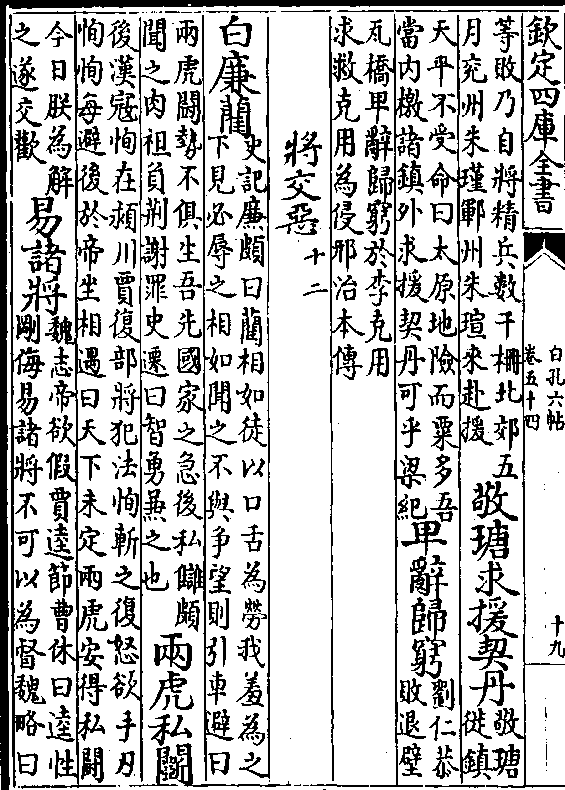 欽定四庫全書
白孔六帖
卷五十四
十九
等敗乃自將精兵數千柵北郊五
月兖州朱瑾鄆州朱瑄來赴援
敬瑭求援契丹
敬瑭
徙鎮
天平不受命曰太原地險而粟多吾
當内檄諸鎮外求援契丹可乎梁紀
卑辭歸窮
劉仁恭
敗退壁
瓦橋卑辭歸窮於李克用
求救克用為侵邢治本傳
將交惡十二
白廉藺
史記廉頗曰藺相如徒以口舌為勞我羞為之
下見必辱之相如聞之不與争望則引車避曰
兩虎鬪勢不俱生吾先國家之急後私讎頗
聞之肉袒負荆謝罪史遷曰智勇兼之也
兩虎私鬪
後漢冦恂在潁川賈復部將犯法恂斬之復怒欲手刃
恂恂每避後於帝坐相遇曰天下未定兩虎安得私鬪
今日朕為解
之遂交歡
易諸將
魏志帝欲假賈逵節曹休曰逵性
剛侮易諸將不可以為督魏略曰